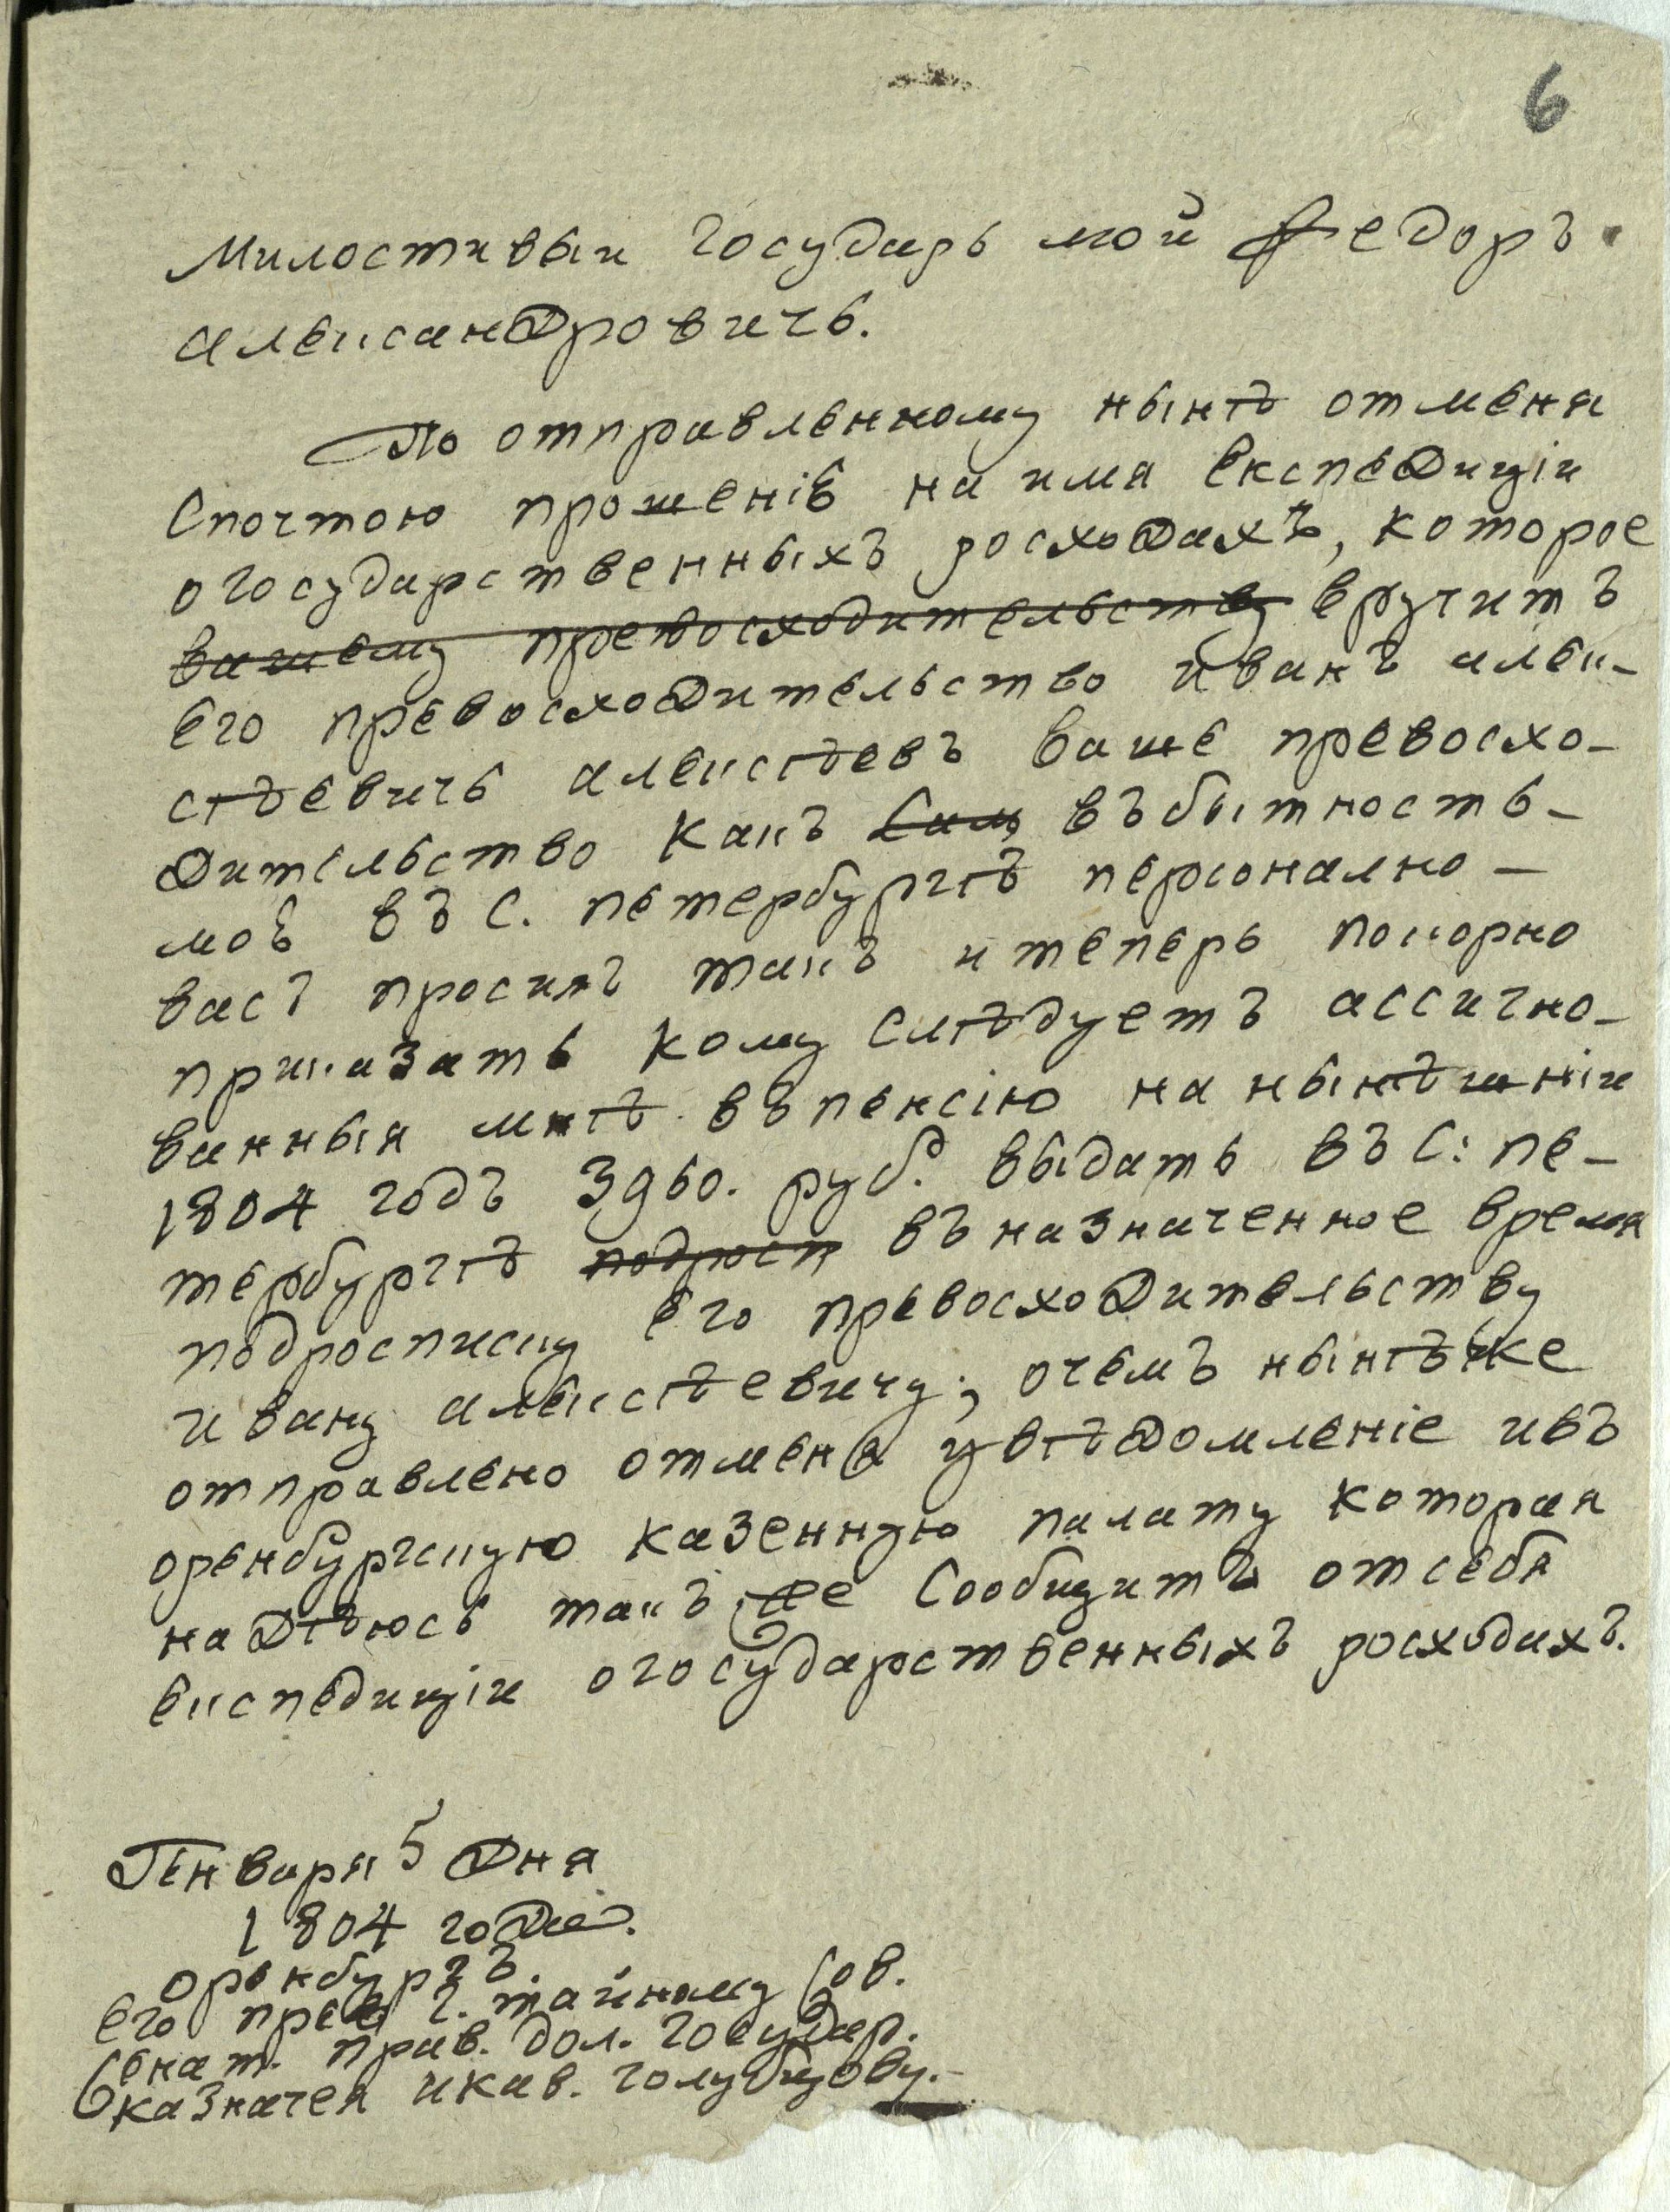 6
Милостивыи государь мой Федоръ
александровичь.
По отправленному нынѣ отменя
Спочтою прошеніе на имя експедиціи
огосударственныхъ росходахъ, которое
вашему превосходительству вручитъ
его превосходительство иванъ алек-
сѣевичь алексѣевъ ваше превосхо-
дительство какъ Самъ въбытность-
мое въ С. петербургѣ персонално-
васъ просилъ такъ итеперь покорно
приказать кому Слѣдуетъ ассигно-
ванныя мнѣ въпенсію на нынѣшніи
1804 годъ 3960. руб. выдать въ С: пе-
тербургѣ подросп въназначенное время
подросписку его превосходительству
ивану алексѣевичу; очемъ нынѣже
отправлено отменя увѣдомленіе ивъ
оренбургскую казенную палату которая
надѣюсь такъ же Сообщитъ отсебя
експедиціи огосударственныхъ росходахъ.
Генваря 5 дня
1804 года.
оренбургъ.
его прев г. тайному Сов.
Сенат. прав. дол. Государ.
казначея икав. голубцову.-